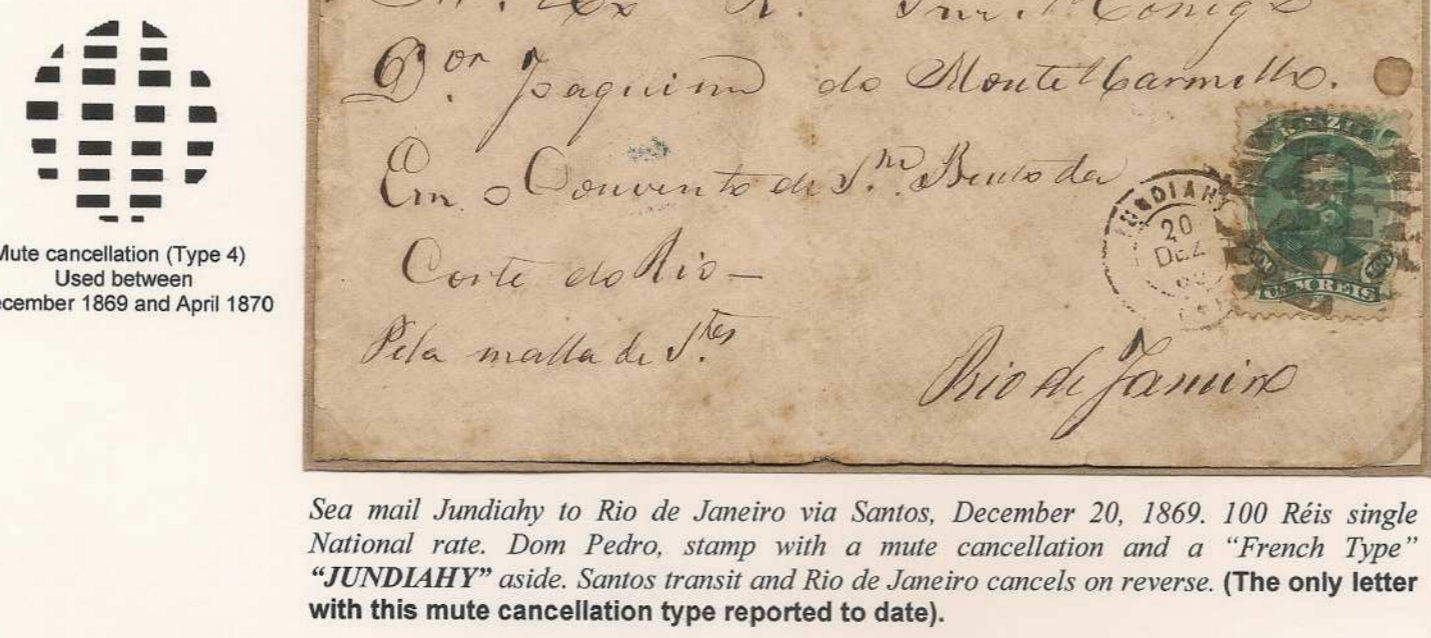 Mute cancellation (Type 4)
Used between
ecember 1869 and April 1870
Dor. Joaquim do Monte Carmello.
Em o Convento de Sm. Bento da
Corte do Rio —
Pela malla de Stes
Rio de Janeiro
BRAZIL
JUNDIAHY
20
DEZ
100
100
CEM REIS
Sea mail Jundiahy to Rio de Janeiro via Santos, December 20, 1869. 100 Réis single
National rate. Dom Pedro, stamp with a mute cancellation and a “French Type”
“JUNDIAHY” aside. Santos transit and Rio de Janeiro cancels on reverse. (The only letter
with this mute cancellation type reported to date).